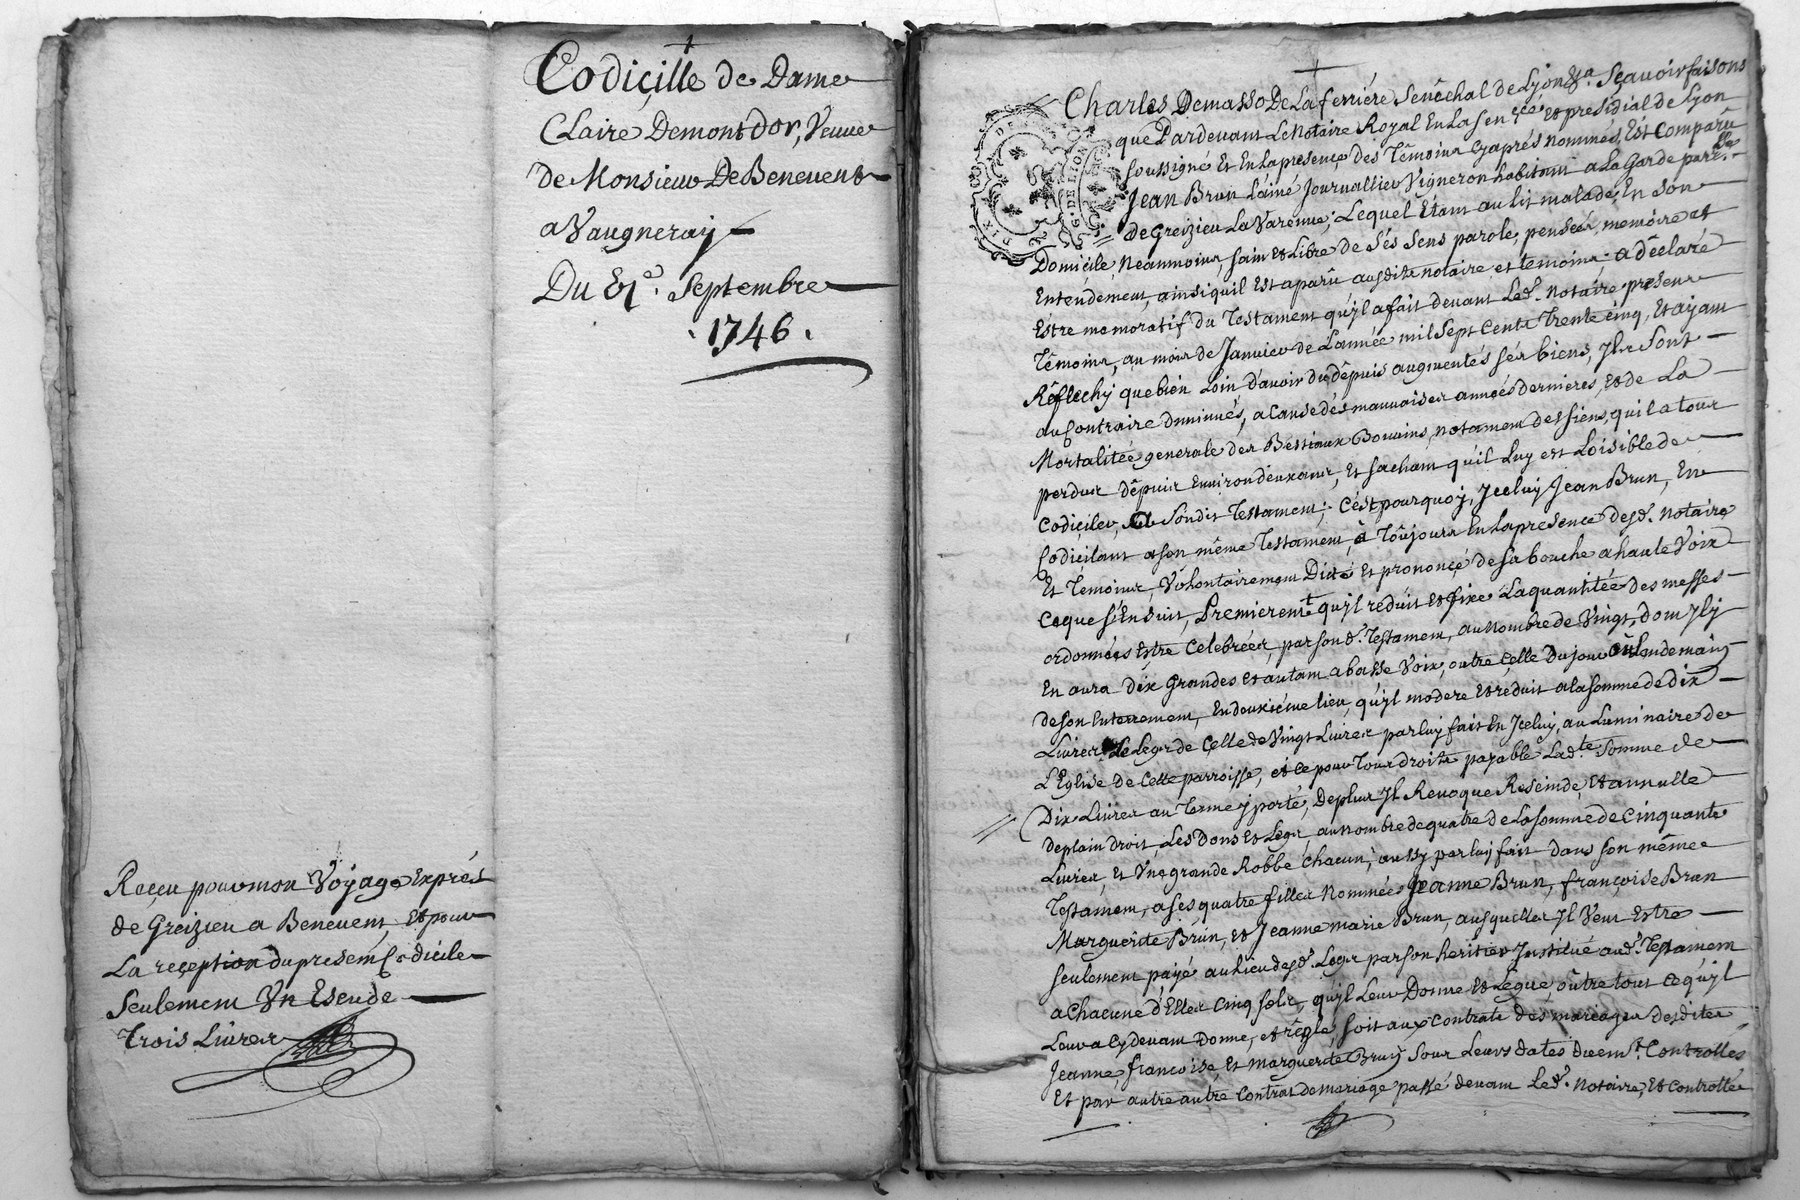 Codiçille de Dame
Claire Demontdor, Veuve
de Monsieur De Benevent
a Vaugneray
Du Septembre
1746.
Reçeu pour mon Voyage Exprés
de Greizieu a Benevent, et pour
La reçeption du present Codicile
Seulement Un Escu de
Trois Livres
Charles Demasso De La ferriére Senêchal de Lyon &a. Sçavoir faisons
que Pardevant Le Notaire Royal En La sen.cée et presidial de Lyon
soussigné Et En La presençe des Têmoins cyaprés nommés, Est Comparû
Jean Brun L'ainé Journallier Vigneron habitant a La Garde parr.sse
de Greizieu La Varenne, Lequel Etant au lit malade, En son
Domiçile, Neanmoins, sain et Libre de sés sens parole, pensées, memoire et
Entendement, ainsi quil Est aparû ausdits notaire et temoins a dêclaré
Estre memoratif du Testament qu'jl a fait devant Led. Notaire presens
Têmoins, au mois de Janvier de L'année mil Sept Cents Trente çinq, Et ayant
Rêflechy que bien Loin d'avoir du dêpuis augmentés sés biens, Jls Sont
au Contraire diminués, a Cause dés mauvaises années dernieres, et de La
Mortalitée generale des Bestiaux Bovains, notament des siens, qu'il a tous
perdus dêpuis Environ deux ans, Et sachant qu'il Luy est Loisible de
Codiçiler, a Sondit Testament; C'est pourquoy, Jceluy Jean Brun, En
Codicilant a son même Testament, à Toûjours En La presence desd. Notaire
Et Têmoins, Volontairement Dicté et prononçé de sa bouche a haute Voix
Ce que s'En suit, Premierem.t qu'jl reduit et fixe La quantitée des messes
ordonnées Estre Celebrées, par son d. Testament, au Nombre de Vingt, dont Jl y
En aura Dix Grandes et autant a basse Voix, outre Çelle du jour ou Lendemain
de son Enterrement, En deuxiéme lieu, qu'jl modere et reduit a la somme de dix
Livres Le Legs de Çelle de Vingt Livres par luy fait En Jceluy, au Luminaire de
L'Eglise de Cette parroisse, et ce pour Tous droits payable Lad.te Somme de
Dix Livres au Terme y porté, De plus Jl Revoque Rescinde, Et annulle
de plain droit, Les Dons et Legs, au nombre de quatre de La somme de Cinquante
Livres, et Une grande Robbe chacun, aussy par luy fait dans son même
Testament, a ses quatre filles Nommées Jeanne Brun, françoise Brun
Marguêrite Brûn, et Jeanne marie Brun, ausquelles Jl Veut Estre
seulement payé au lieu desd. Legs par son heritier Jnstitué aud. Testament
a Chacune d'Elles Cinq sols, qu'jl Leur Donne et Legue oûtre tout ce qu'jl
Leur a Cy devant Donné, et rêglé soit aux Contrats dés mariages desdites
Jeanne, francoise, et marguerite Brun sous Leurs dates duem.t Controllés
Et par autre autre Contrat de mariage passé devant Led. Notaire, Et controllé